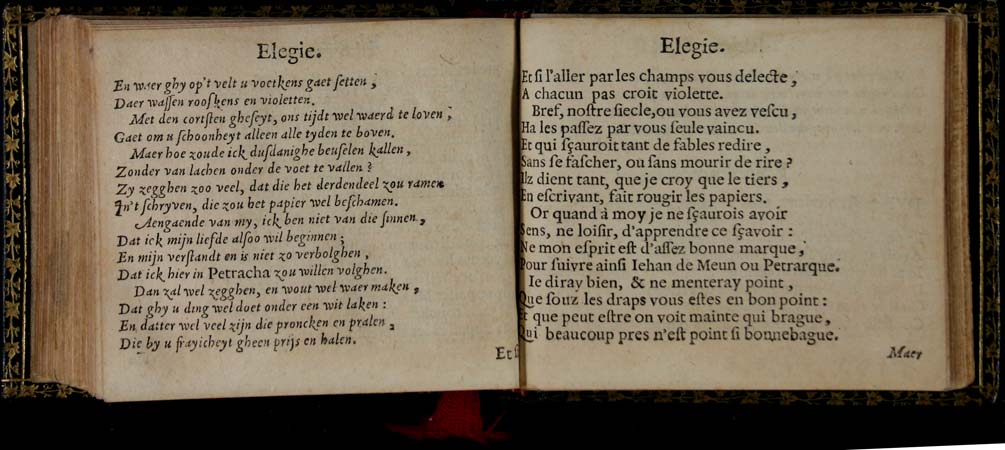 Elegie.
En waer ghy op't velt u voetkens gaet ſetten,
Daer waſſen rooſkens en violetten.
Met den cortſten gheſeyt, ons tijdt wel waerd te loven;
Gaet om u ſchoonheyt alleen alle tyden te boven.
Maer hoe zoude ick duſdanighe beuſelen kallen,
Zonder van lachen onder de voet te vallen?
Zy zegghen zoo veel, dat die het derdendeel zou ramen
In't ſchryven, die zou het papier wel beſchamen.
Aengaende van my, ick ben niet van die ſinnen,
Dat ick mijn liefde alſoo wil beginnen;
En mijn verſtandt en is niet zo verbolghen,
Dat ick hier in Petracha zou willen volghen.
Dan zal wel zegghen, en wout wel waer maken,
Dat ghy u ding wel doet onder een wit laken:
En datter wel veel zijn die proncken en pralen,
Die by u frayicheyt gheen prijs en halen.
Et ſi
Elegie.
Et ſi l'aller par les champs vous delecte,
A chacun pas croit violette.
Bref, noſtre ſiecle, ou vous avez veſcu,
Ha les paſſez par vous ſeule vaincu.
Et qui ſçauroit tant de fables redire,
Sans ſe faſcher, ou ſans mourir de rire?
Ilz dient tant, que je croy que le tiers,
En eſcrivant, fait rougir les papiers.
Or quand à moy je ne ſçaurois avoir
Sens, ne loiſir, d'apprendre ce ſçavoir:
Ne mon eſprit eſt d'aſſez bonne marque,
Pour ſuivre ainſi Iehan de Meun ou Petrarque.
Ie diray bien, & ne menteray point,
Que ſouz les draps vous eſtes en bon point:
Et que peut eſtre on voit mainte qui brague,
Qui beaucoup pres n'eſt point ſi bonnebague.
Maer